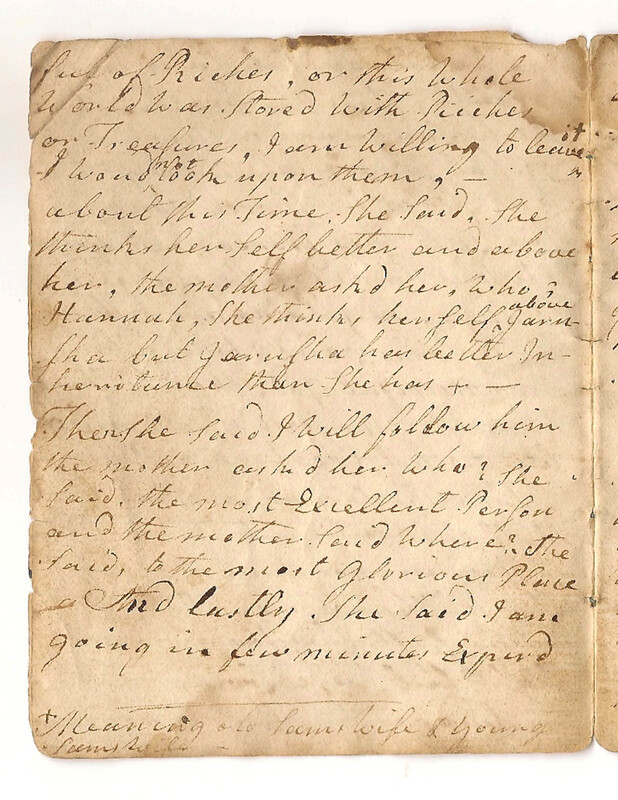 full of Riches, or this Whole
World Was Stored With Riches
or Treasures, I am Willing to leave it
I woud not look upon them, —
about this Time, She Said, She
thinks her Self better and above
her, the mother askd her, Who?
Hannah, She thinks herself above Jaru-
sha but Jarusha has better In-
heritance than She has + —
Then She Said I Will follow him
the mother askd her Who? She
Said, the most Excellent Person
and the mother Said Where? She
Said, to the most Glorious Place
And lastly She Said I am
going in few minutes Expird
+ Meaning old Sams Wife & Young
Sams Wife —